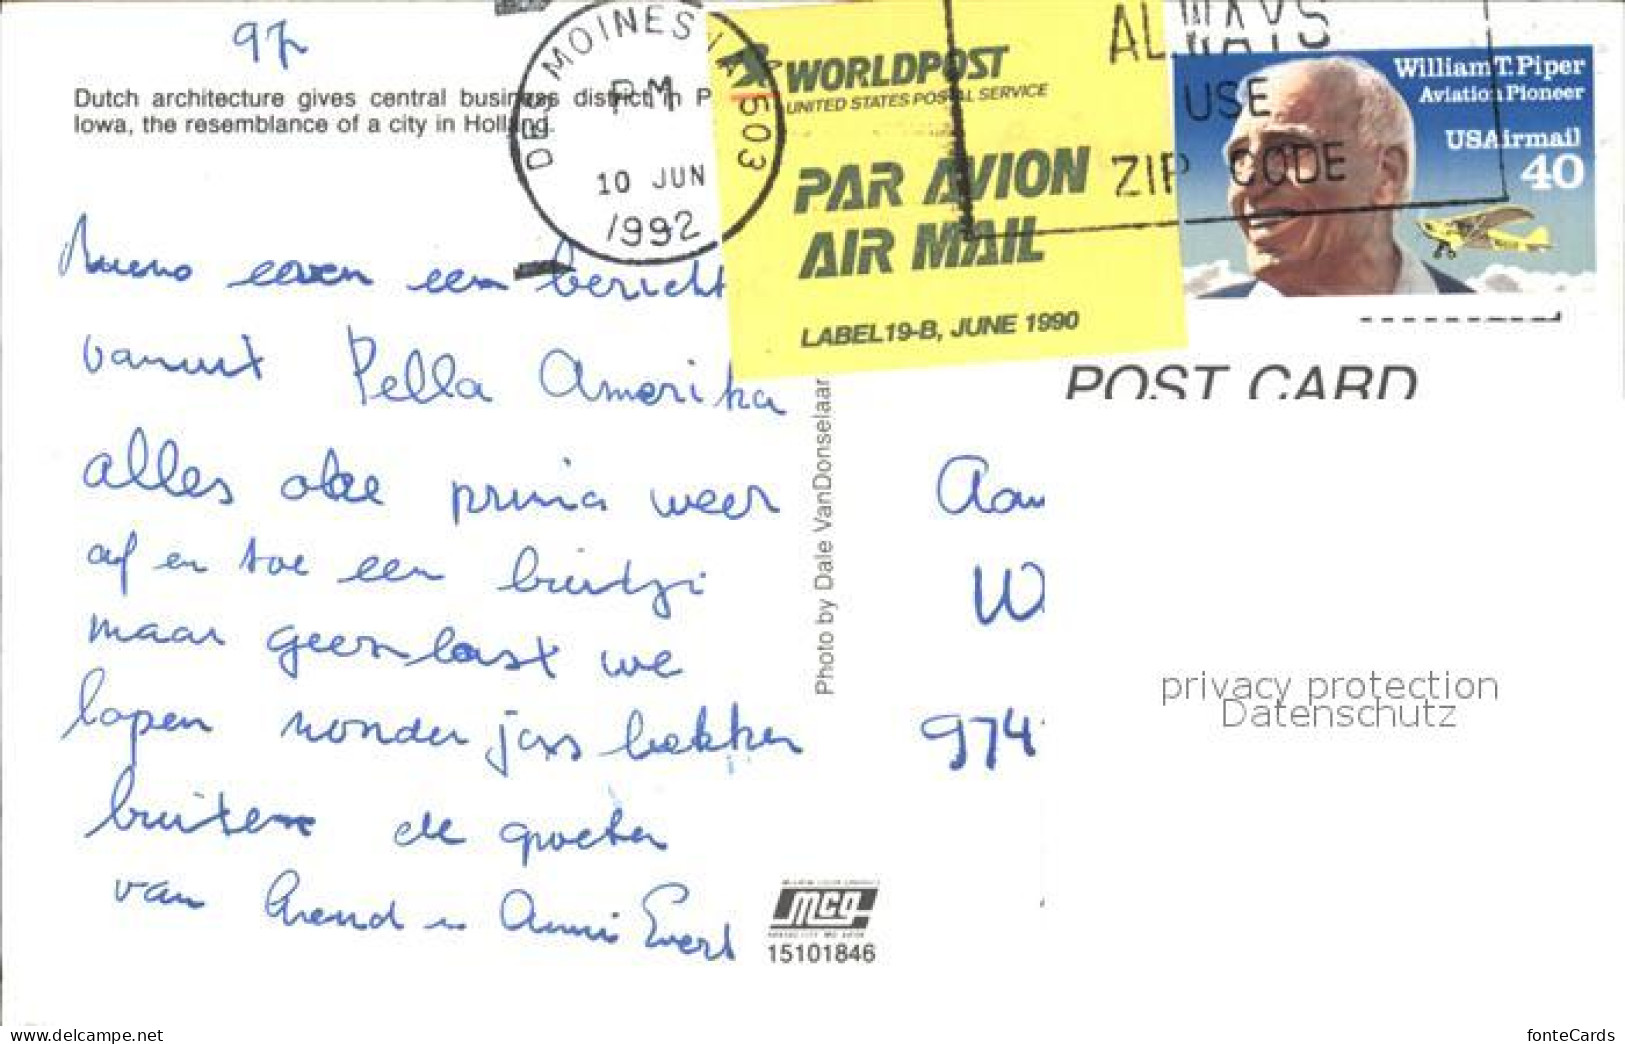 97
Dutch architecture gives central business district in P
Iowa, the resemblance of a city in Holland.
DES MOINES IA 503
PM
10 JUN
1992
WORLDPOST
UNITED STATES POSTAL SERVICE
PAR AVION
AIR MAIL
LABEL 19-B, JUNE 1990
ALWAYS
USE
ZIP CODE
William T. Piper
Aviation Pioneer
USAirmail
40
POST CARD
even een bericht
vanuit Pella Amerika
alles oke prima weer
af en toe een buitje
maar geen last we
lopen zonder jas lekker
buiten de groeten
van Arend en Annie Evert
Photo by Dale VanDonselaar
Aan
W
974
privacy protection
Datenschutz
mcg
15101846
www.delcampe.net
fonteCards